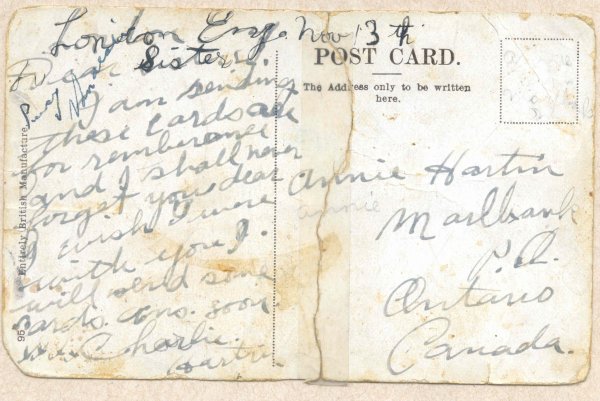 London Eng. Nov 13th
Dear Sister
I am sending
these cards
for rememberance
and I shall never
forget you dear
I wish I were
with you I
will send some
cards soon
Charlie
Hartin
POST CARD.
The Address only to be written
here.
Annie Hartin
annie
Marlbank
P.O.
Ontario
Canada.
Entirely British Manufacture